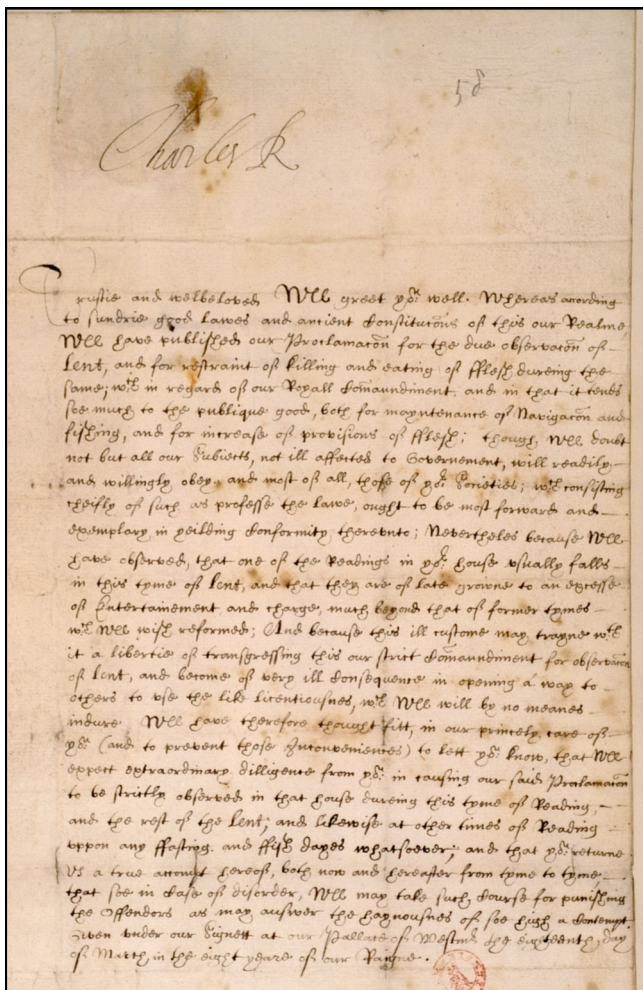 58
Charles R
Trustie and welbeloved Wee greet you well. Whereas according
to sundrie good lawes and ancient Constitucõns of this our Realme,
Wee have published our Proclamacõn for the due observacõn of
Lent, and for restraint of killing and eating of fflesh dureing the
same; wch in regard of our Royall Com̃aundiment, and in that it tends
soe much to the publique good, both for mayntenance of Navigacõn and
fishing, and for increase of provisions of fflesh; though, Wee doubt
not but all our Subjects, not ill affected to Governement, will readily
and willingly obey, and most of all, those of yor Societies; wch consisting
cheifly of such as professe the lawe, ought to be most forward and
exemplary in yeilding Conformity therevnto; Nevertheles because Wee
have observed, that one of the Readings in yor house vsually falls
in this tyme of Lent, and that they are of late growne to an excesse
of Entertainement and charge, much beyond that of former tymes
wch Wee wish reformed; And because this ill custome may trayne wth
it a libertie of transgressing this our strict Com̃aundiment for observacõn
of Lent, and become of very ill Consequence in opening a way to
others to vse the like licentiousnes, wch Wee will by no meanes
indure Wee have therefore thought fitt, in our princely care of
you (and to prevent those Inconveniences) to lett you know, that Wee
expect extraordinary dilligence from you in causing our said Proclamacõn
to be strictly observed in that house dureing this tyme of Reading,
and the rest of the Lent; and likewise at other times of Reading
vppon any ffasting and ffish dayes whatsoever; and that you returne
vs a true accompt hereof, both now and hereafter from tyme to tyme
that soe in Case of disorder, Wee may take such Course for punishing
the Offendors as may answer the haynousnes of soe high a Contempt.
Given vnder our Signett at our Pallace of Westmr the eighteenth day
of March, in the eight yeare of our Raigne.